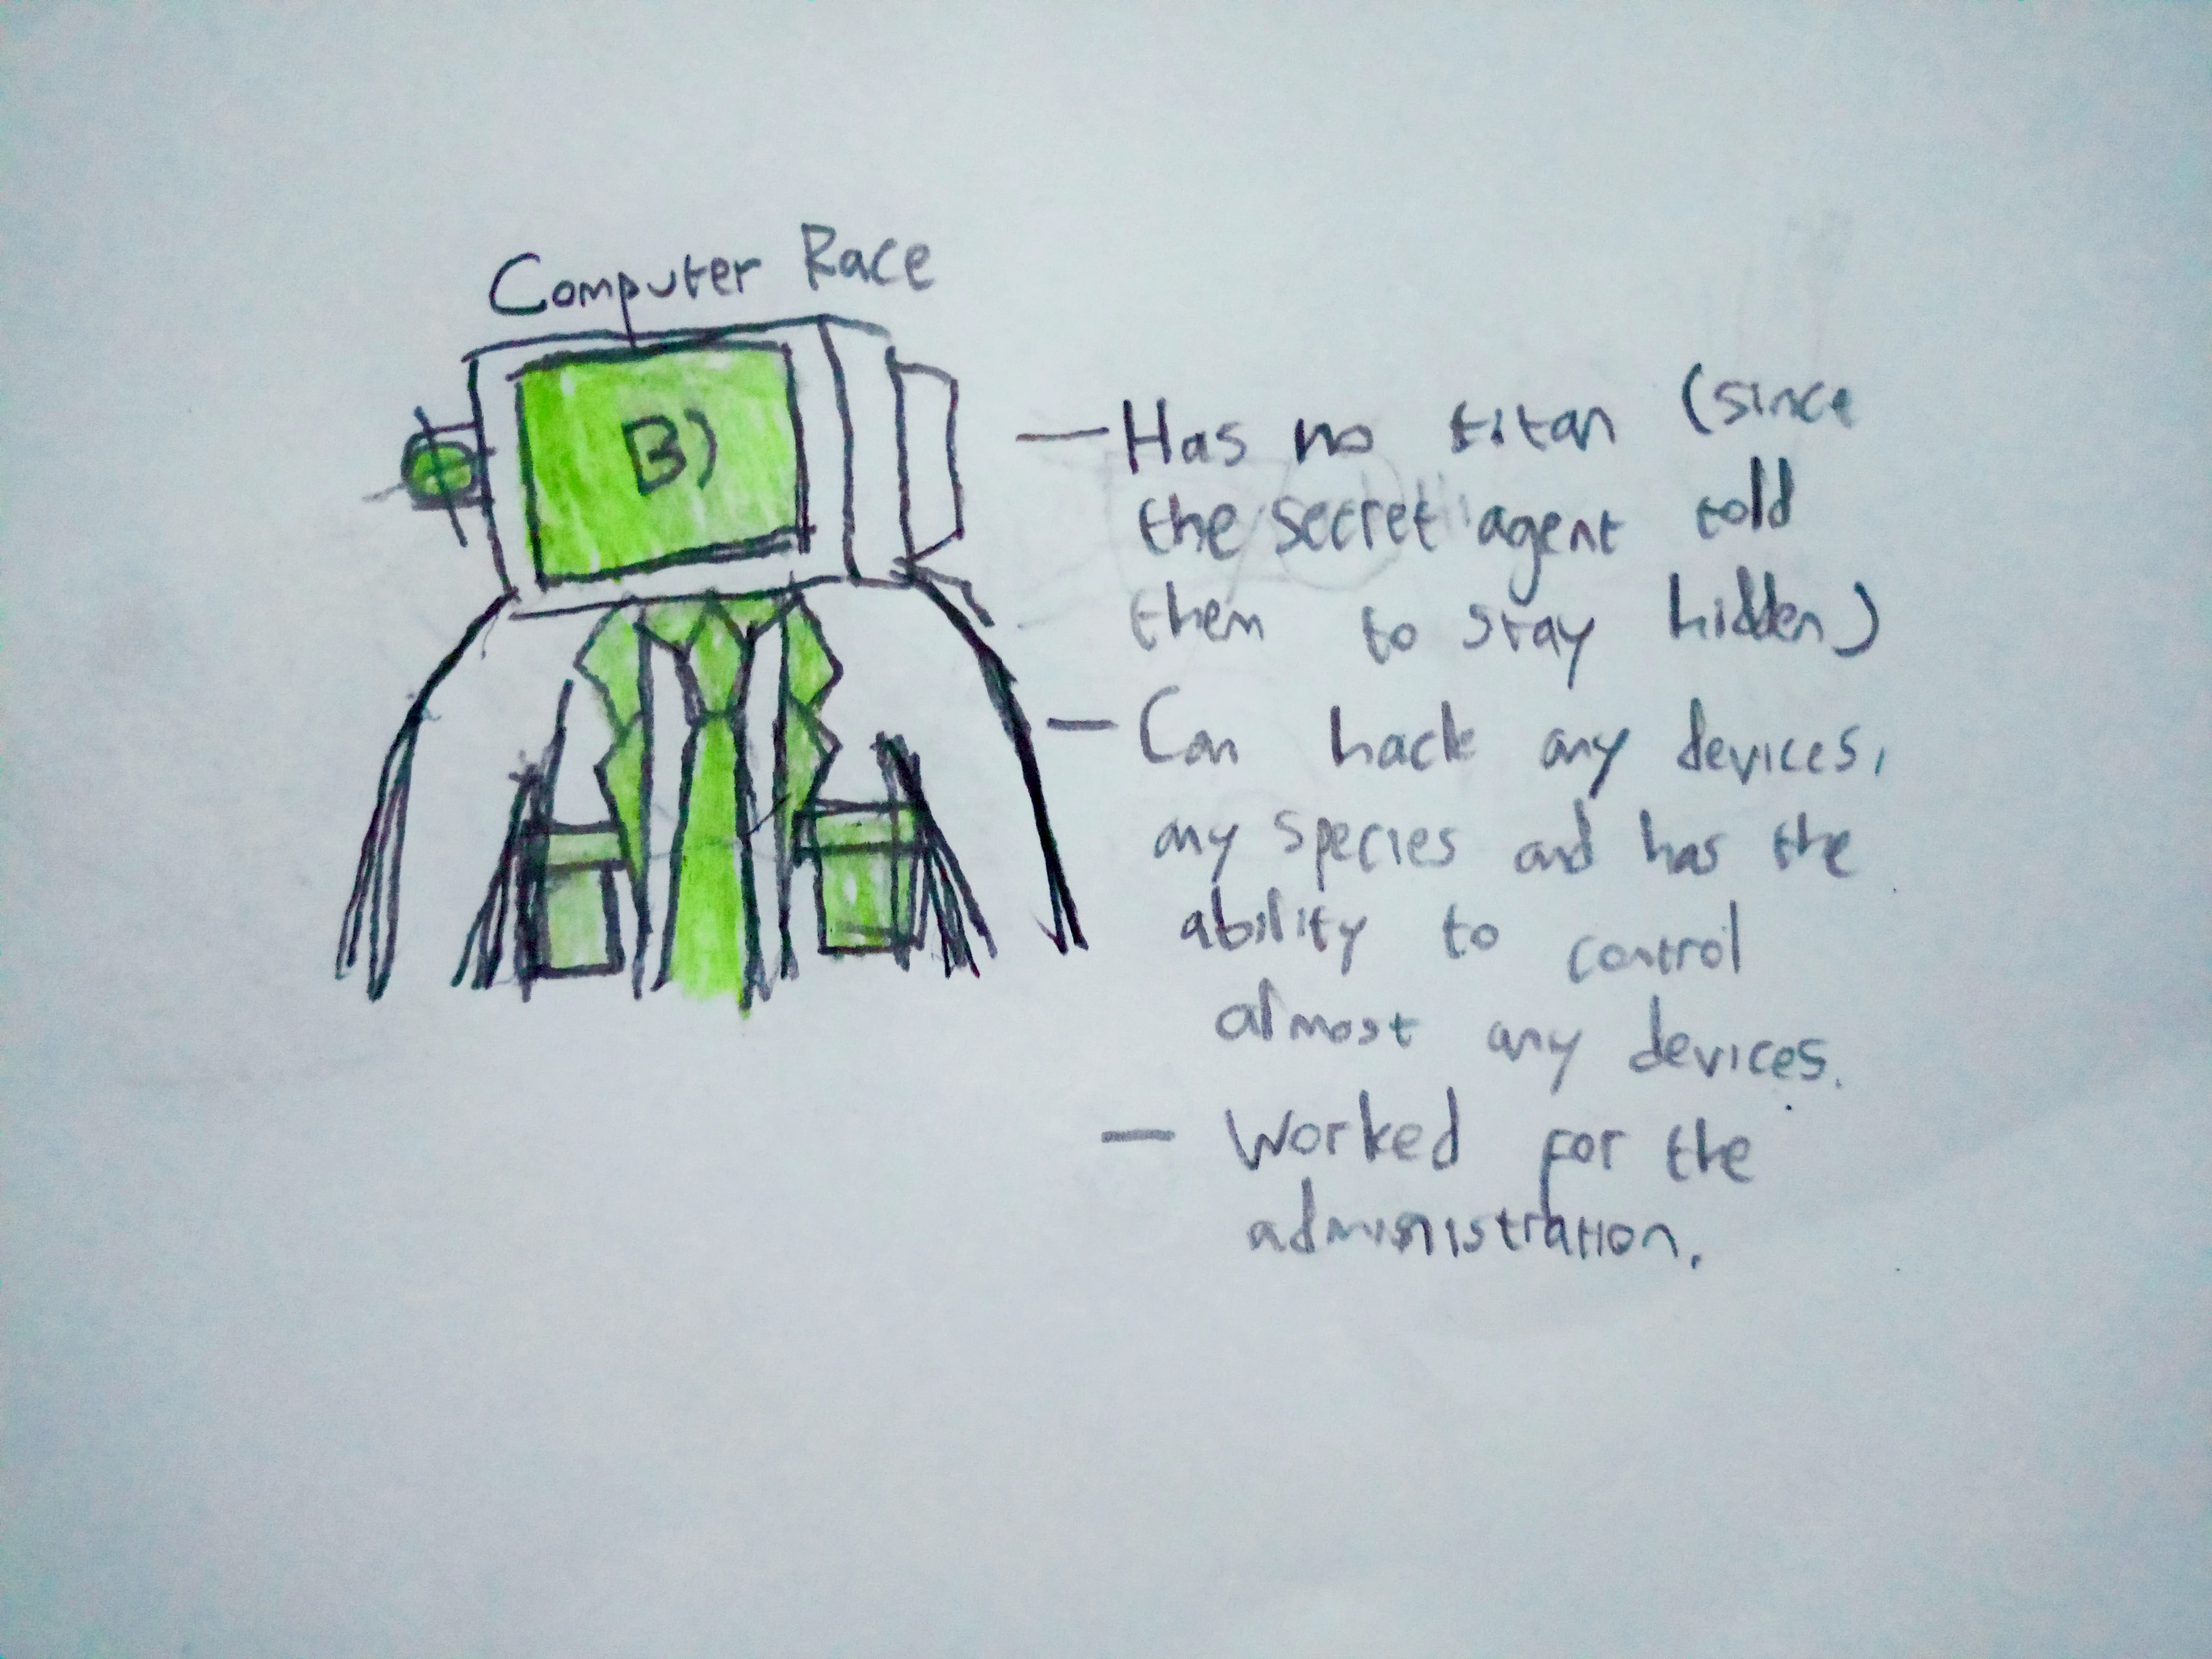 Computer Race
B)
— Has no titan (since
the secret agent told
them to stay hidden)
— Can hack any devices,
any species and has the
ability to control
almost any devices.
— Worked for the
administration.